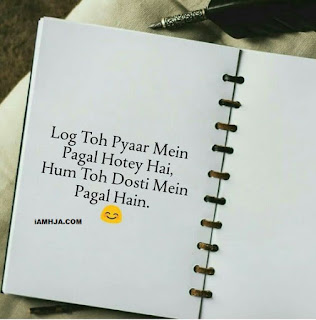 Log Toh Pyaar Mein
Pagal Hotey Hai,
Hum Toh Dosti Mein
Pagal Hain.
😊
iAMHJA.COM